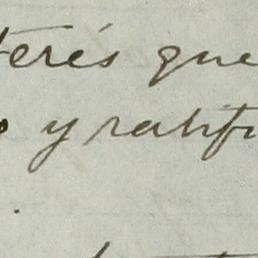 terés que
y ratifi